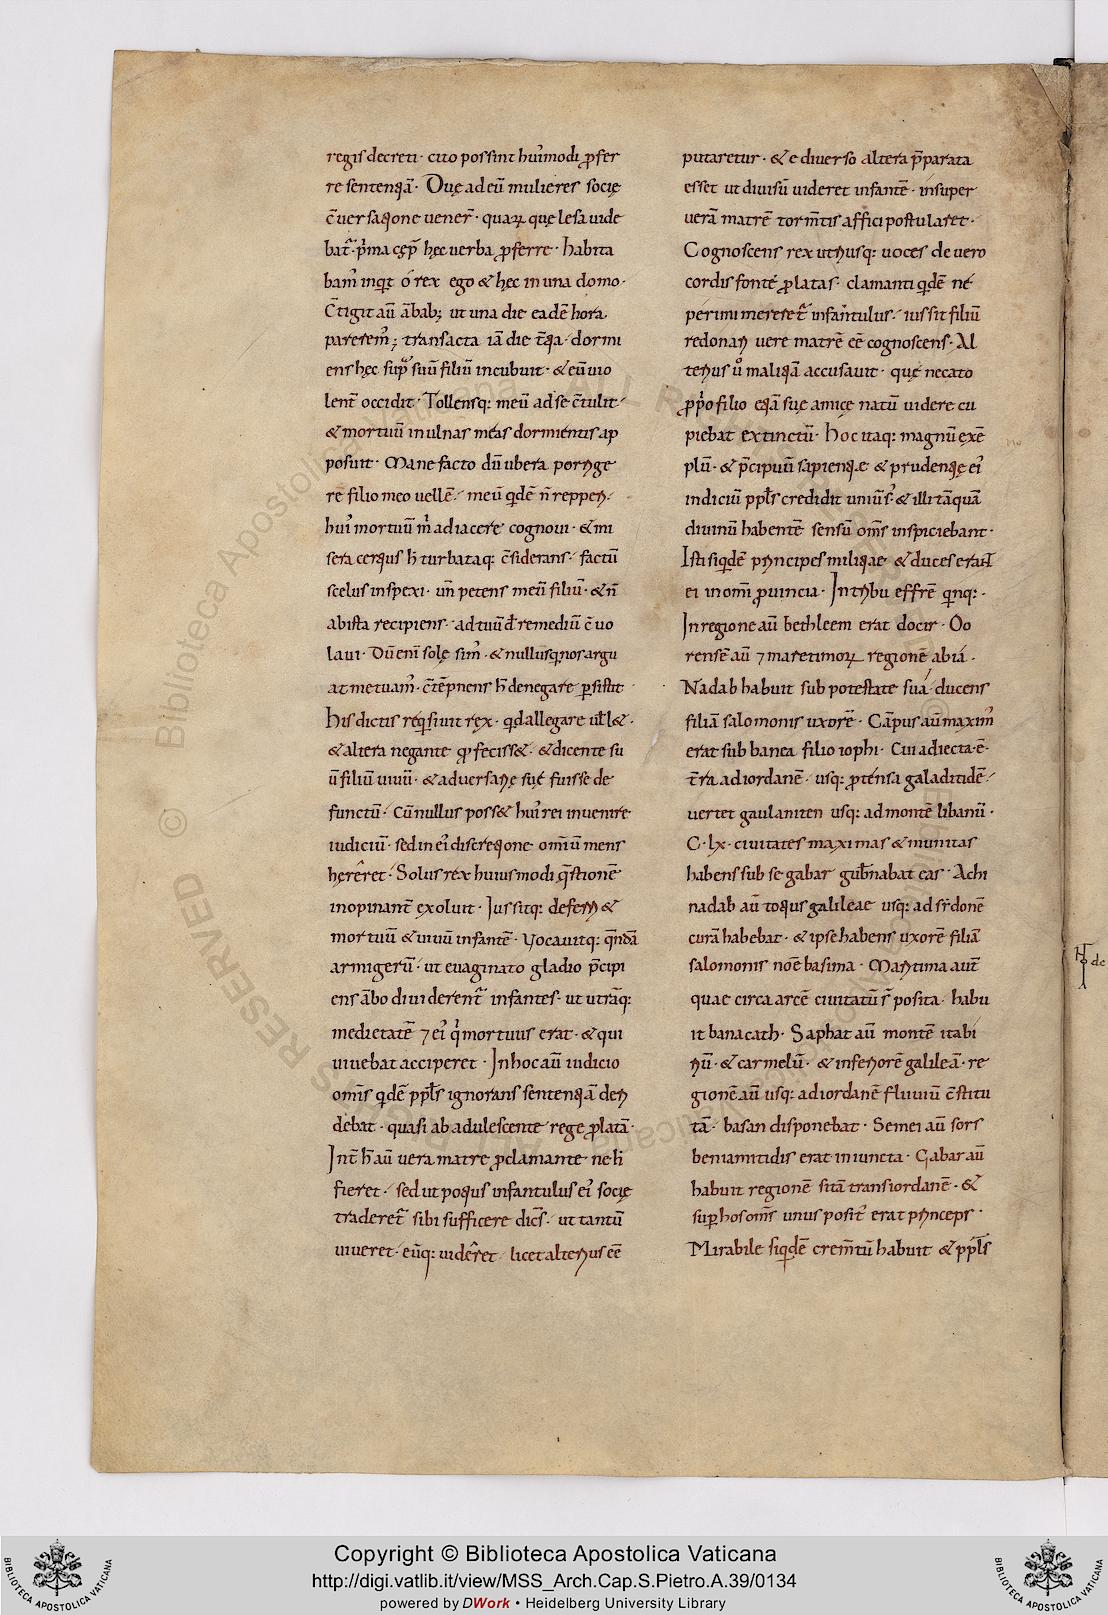 regis decreti · cito possint hui᷒modi ꝓfer
re sententiā · Que̜ ad eū mulieres socie̜
c̄uersatione uener̄ · quaꝝ que̜ lesa uide
bat᷒ · p̄ma cep̄ he̜c uerba ꝓferre · habita
bam᷒ inqͥt o rex ego & he̜c in una domo ·
C̄tigit aū ābabꝫ ut una die eadē hora
parerem᷒ ; transacta iā die t̄tia · dormi
ens he̜c sup̄ suū filiū incubuit · & eū uio
lent̄ occidit · Tollensqꝫ meū ad se c̄tulit ·
& mortuū in ulnas meas dormientis ap
posuit · Mane facto dū ubera porrige
re filio meo uellē · meū qͥdē n̄ repperi ·
hui᷒ mortuū m̄ adiacere cognoui · & mi
sera certius h̄ turbataqꝫ c̄siderans · factū
scelus inspexi · un̄ petens meū filiū · & n̄
ab ista recipiens · ad tuū dn̄e remediū c̄uo
laui · Dū eni sole̜ sim᷒ · & nullusqꝫ nos argu
at metuam᷒ · c̄tēpnens h̄ denegare ꝑsistit
His dictis reqͥsiuit rex · qd̄ allegare uell& ·
& altera negante qd̄ feciss& · & dicente su
ū filiū uiuū · & aduersarie̜ sue̜ fuisse de
functū · Cū nullus poss& hui᷒ rei inuenire
iudiciū · sed in ei᷒ discretione omīū mens
he̜rēret · Solus rex huiusmodi qͣstionē
inopinant̄ exoluit · Iussitqꝫ deferri &
mortuū & uiuū infantē · Vocauitqꝫ qͣndā
armigerū · ut euaginato gladio p̄cipi
ens ābo diuiderent᷒ infantes · ut utrāqꝫ
medietatē ⁊ ei᷒ qͥ mortuus erat · & qui
uiuebat acciperet · In hoc aū iudicio
om̄s qͥdē ppl̄s ignorans sententiā deri
debat · quasi ab adulescente rege ꝓlatā ·
Int̄ h̄ aū uera matre ꝓclamante ne h̄
fieret · sed ut potius infantulus ei᷒ socie̜
traderet᷒ sibi sufficere dic̄s · ut tantū
uiueret · eūqꝫ uidēret · licet alterius eē
putaretur · & e diuerso altera p̄parata
esset ut diuisū uideret infantē · insuper
uerā matrē torm̄tis affici postularet ·
Cognoscens rex utriusqꝫ uoces de uero
cordis fonte ꝓlatas · clamanti qͥdē ne
perimi meretet᷒ infantulus · iussit filiū
redonari uere matrē eē cognoscens · Al
terius u᷒ malitiā accusauit · que̜ necato
ꝓp̄o filio etiā sue̜ amice̜ natū uidere cu
piebat extinctū · Hoc itaqꝫ magnū exē
plū · & p̄cipuū sapientiae & prudentie̜ ei᷒
indiciū ppl̄s credidit uniūs · & illi tāquā
diuinū habentē sensū om̄s inspiciebant ·
Isti siqͥdē principes militiae & duces erant
ei in omi ꝓuincia · In tribu effrē qͥnqꝫ ·
In regione aū bethleem erat docir · Oo
rensē aū ⁊ maretimoꝝ regionē abia ·
Nadab habuit sub potestate sua · ducens
filiā salomonis uxorē · Cāpus aū maxim᷒
erat sub banea filio iophi · Cui adiecta · ē ·
t̄ra ad iordanē · usqꝫ ꝓtensa galaditidē ·
uertet gaulaniten usqꝫ ad montē libanū ·
C · lx · ciuitates maximas & munitas
habens sub se gabar gub̄nabat eas · Achi
nadab aū totius galileae usqꝫ ad sidonē
curā habebat · & ipse habens uxorē filiā
salomonis noē basima · Maritima aut̄
quae circa arcē ciuitatū s̄ posita · habu
it banacath · Saphat aū montē itabi
riū · & carmelū · & inferiorē galileā · re
gionē aū usqꝫ ad iordanē fluuiū c̄stitu
tā · basan disponebat · Semei aū sors
beniamitidis erat iniuncta · Gabar aū
habuit regionē sitā trans iordanē · &
sup hos om̄s unus posit᷒ erat princeps ·
Mirabile siqͥdē crem̄tū habuit & ppl̄s
Copyright © Biblioteca Apostolica Vaticana
http://digi.vatlib.it/view/MSS_Arch.Cap.S.Pietro.A.39/0134
powered by DWork • Heidelberg University Library